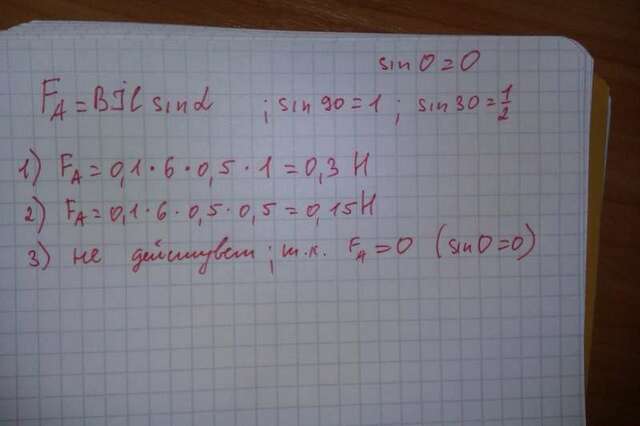 sin 0 = 0
F_A = BIl sin α ; sin 90 = 1 ; sin 30 = 1/2
1) F_A = 0,1 · 6 · 0,5 · 1 = 0,3 Н
2) F_A = 0,1 · 6 · 0,5 · 0,5 = 0,15 Н
3) не действует ; т.к. F_A = 0 (sin 0 = 0)